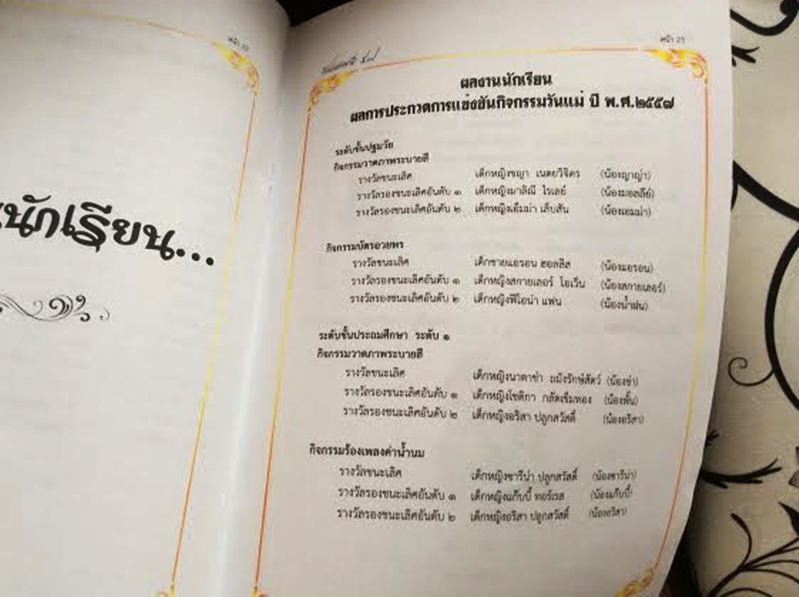 นักเรียน...
หน้า 23
ผลงานนักเรียน
ผลการประกวดการแข่งขันกิจกรรมวันแม่ ปี พ.ศ.๒๕๕๗
ระดับชั้นปฐมวัย
กิจกรรมวาดภาพระบายสี
รางวัลชนะเลิศ เด็กหญิงชญา เนตยวิจิตร (น้องญาญ่า)
รางวัลรองชนะเลิศอันดับ ๑ เด็กหญิงมาลิณี ไรเลย์ (น้องมอลลีย์)
รางวัลรองชนะเลิศอันดับ ๒ เด็กหญิงเอ็มม่า เส็บสัน (น้องเอมม่า)
กิจกรรมบัตรอวยพร
รางวัลชนะเลิศ เด็กชายแอรอน ฮอลลิส (น้องแอรอน)
รางวัลรองชนะเลิศอันดับ ๑ เด็กหญิงสกายเลอร์ โอเว็น (น้องสกายเลอร์)
รางวัลรองชนะเลิศอันดับ ๒ เด็กหญิงฟิโอน่า แฟน (น้องน้ำฝน)
ระดับชั้นประถมศึกษา ระดับ ๑
กิจกรรมวาดภาพระบายสี
รางวัลชนะเลิศ เด็กหญิงนาตาช่า ถมังรักษ์สัตว์ (น้องช่า)
รางวัลรองชนะเลิศอันดับ ๑ เด็กหญิงโชติกา กลัดเข็มทอง (น้องพั้น)
รางวัลรองชนะเลิศอันดับ ๒ เด็กหญิงอริสา ปลูกสวัสดิ์ (น้องอริสา)
กิจกรรมร้องเพลงค่าน้ำนม
รางวัลชนะเลิศ เด็กหญิงซารีน่า ปลูกสวัสดิ์ (น้องซารีน่า)
รางวัลรองชนะเลิศอันดับ ๑ เด็กหญิงแก๊บบี้ ทอร์เรส (น้องแก๊บบี้)
รางวัลรองชนะเลิศอันดับ ๒ เด็กหญิงอริสา ปลูกสวัสดิ์ (น้องอริสา)